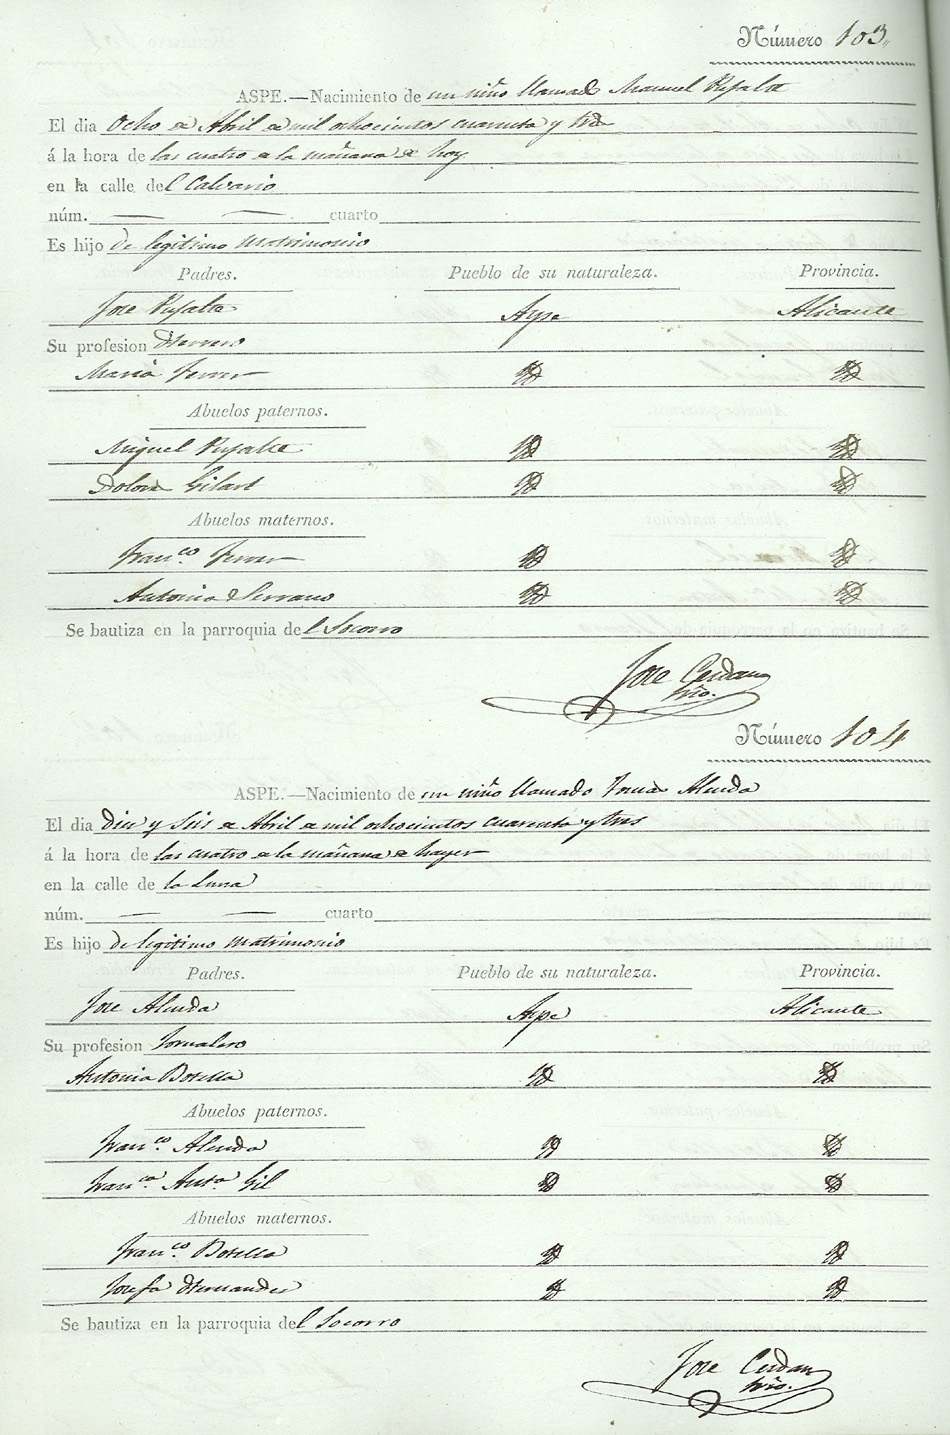 Número 103.
ASPE.—Nacimiento de un niño llamado Manuel
El dia Ocho de Abril de mil ochocientos cuarenta y tres
á la hora de las cuatro de la mañana de hoy
en la calle del Calvario
núm. — — cuarto
Es hijo de legitimo matrimonio
Padres. Pueblo de su naturaleza. Provincia.
Jose Aspe Alicante
Su profesion Herrero
Maria Ferrer Id Id
Abuelos paternos.
Miguel Id Id
Dolores Gilart Id Id
Abuelos maternos.
Franco. Ferrer Id Id
Antonia Serrano Id Id
Se bautiza en la parroquia del Socorro
Jose Cerdan
Srio.
Número 104
ASPE.—Nacimiento de un niño llamado Tomas Alenda
El dia Diez y Seis de Abril de mil ochocientos cuarenta y tres
á la hora de las cuatro de la mañana de hayer
en la calle de la Luna
núm. — — cuarto
Es hijo de legitimo matrimonio
Padres. Pueblo de su naturaleza. Provincia.
Jose Alenda Aspe Alicante
Su profesion Jornalero
Antonia Botella Id Id
Abuelos paternos.
Franco. Alenda Id Id
Franca. Anta. Gil Id Id
Abuelos maternos.
Franco. Botella Id Id
Josefa Hernandez Id Id
Se bautiza en la parroquia del Socorro
Jose Cerdan
Srio.